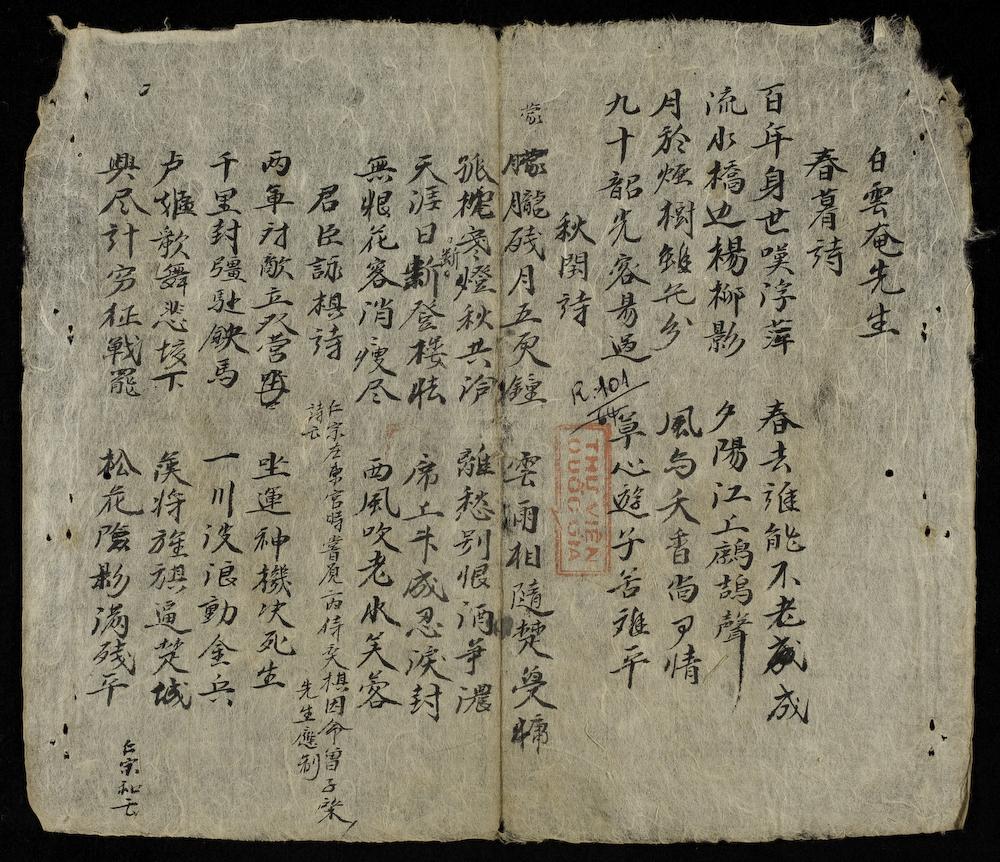 白雲奄先生
春暮詩
百年身世嘆浮萍 春去誰能不老成
流水橋边楊柳影 夕陽江上鷓鴣聲
月於烟樹雖無分 風与天香尚有情
九十韶光容易過 草心遊子苦难平
秋閨詩
朦朧残月五更鍾 雲雨相隨楚夢慵
孤枕寒燈秋共冷 離愁别恨酒争濃
天涯日断登楼怯 席上成忍淚封
無恨花容消瘦尽 西風吹老水芙蓉
君臣詠棋詩
仁宗在東宮時嘗見内侍奕棋因命曾子棨
先生應制
詩云
两軍对敵立双营 坐運神機决死生
千里封疆馳鉄馬 一川波浪動金兵
卢姬歌舞悲垓下 漢将旌旗逼楚城
興尽計穷征戦罷 松花隂影满残平
仁宗和云
R.101
THƯ VIỆN
QUỐC GIA